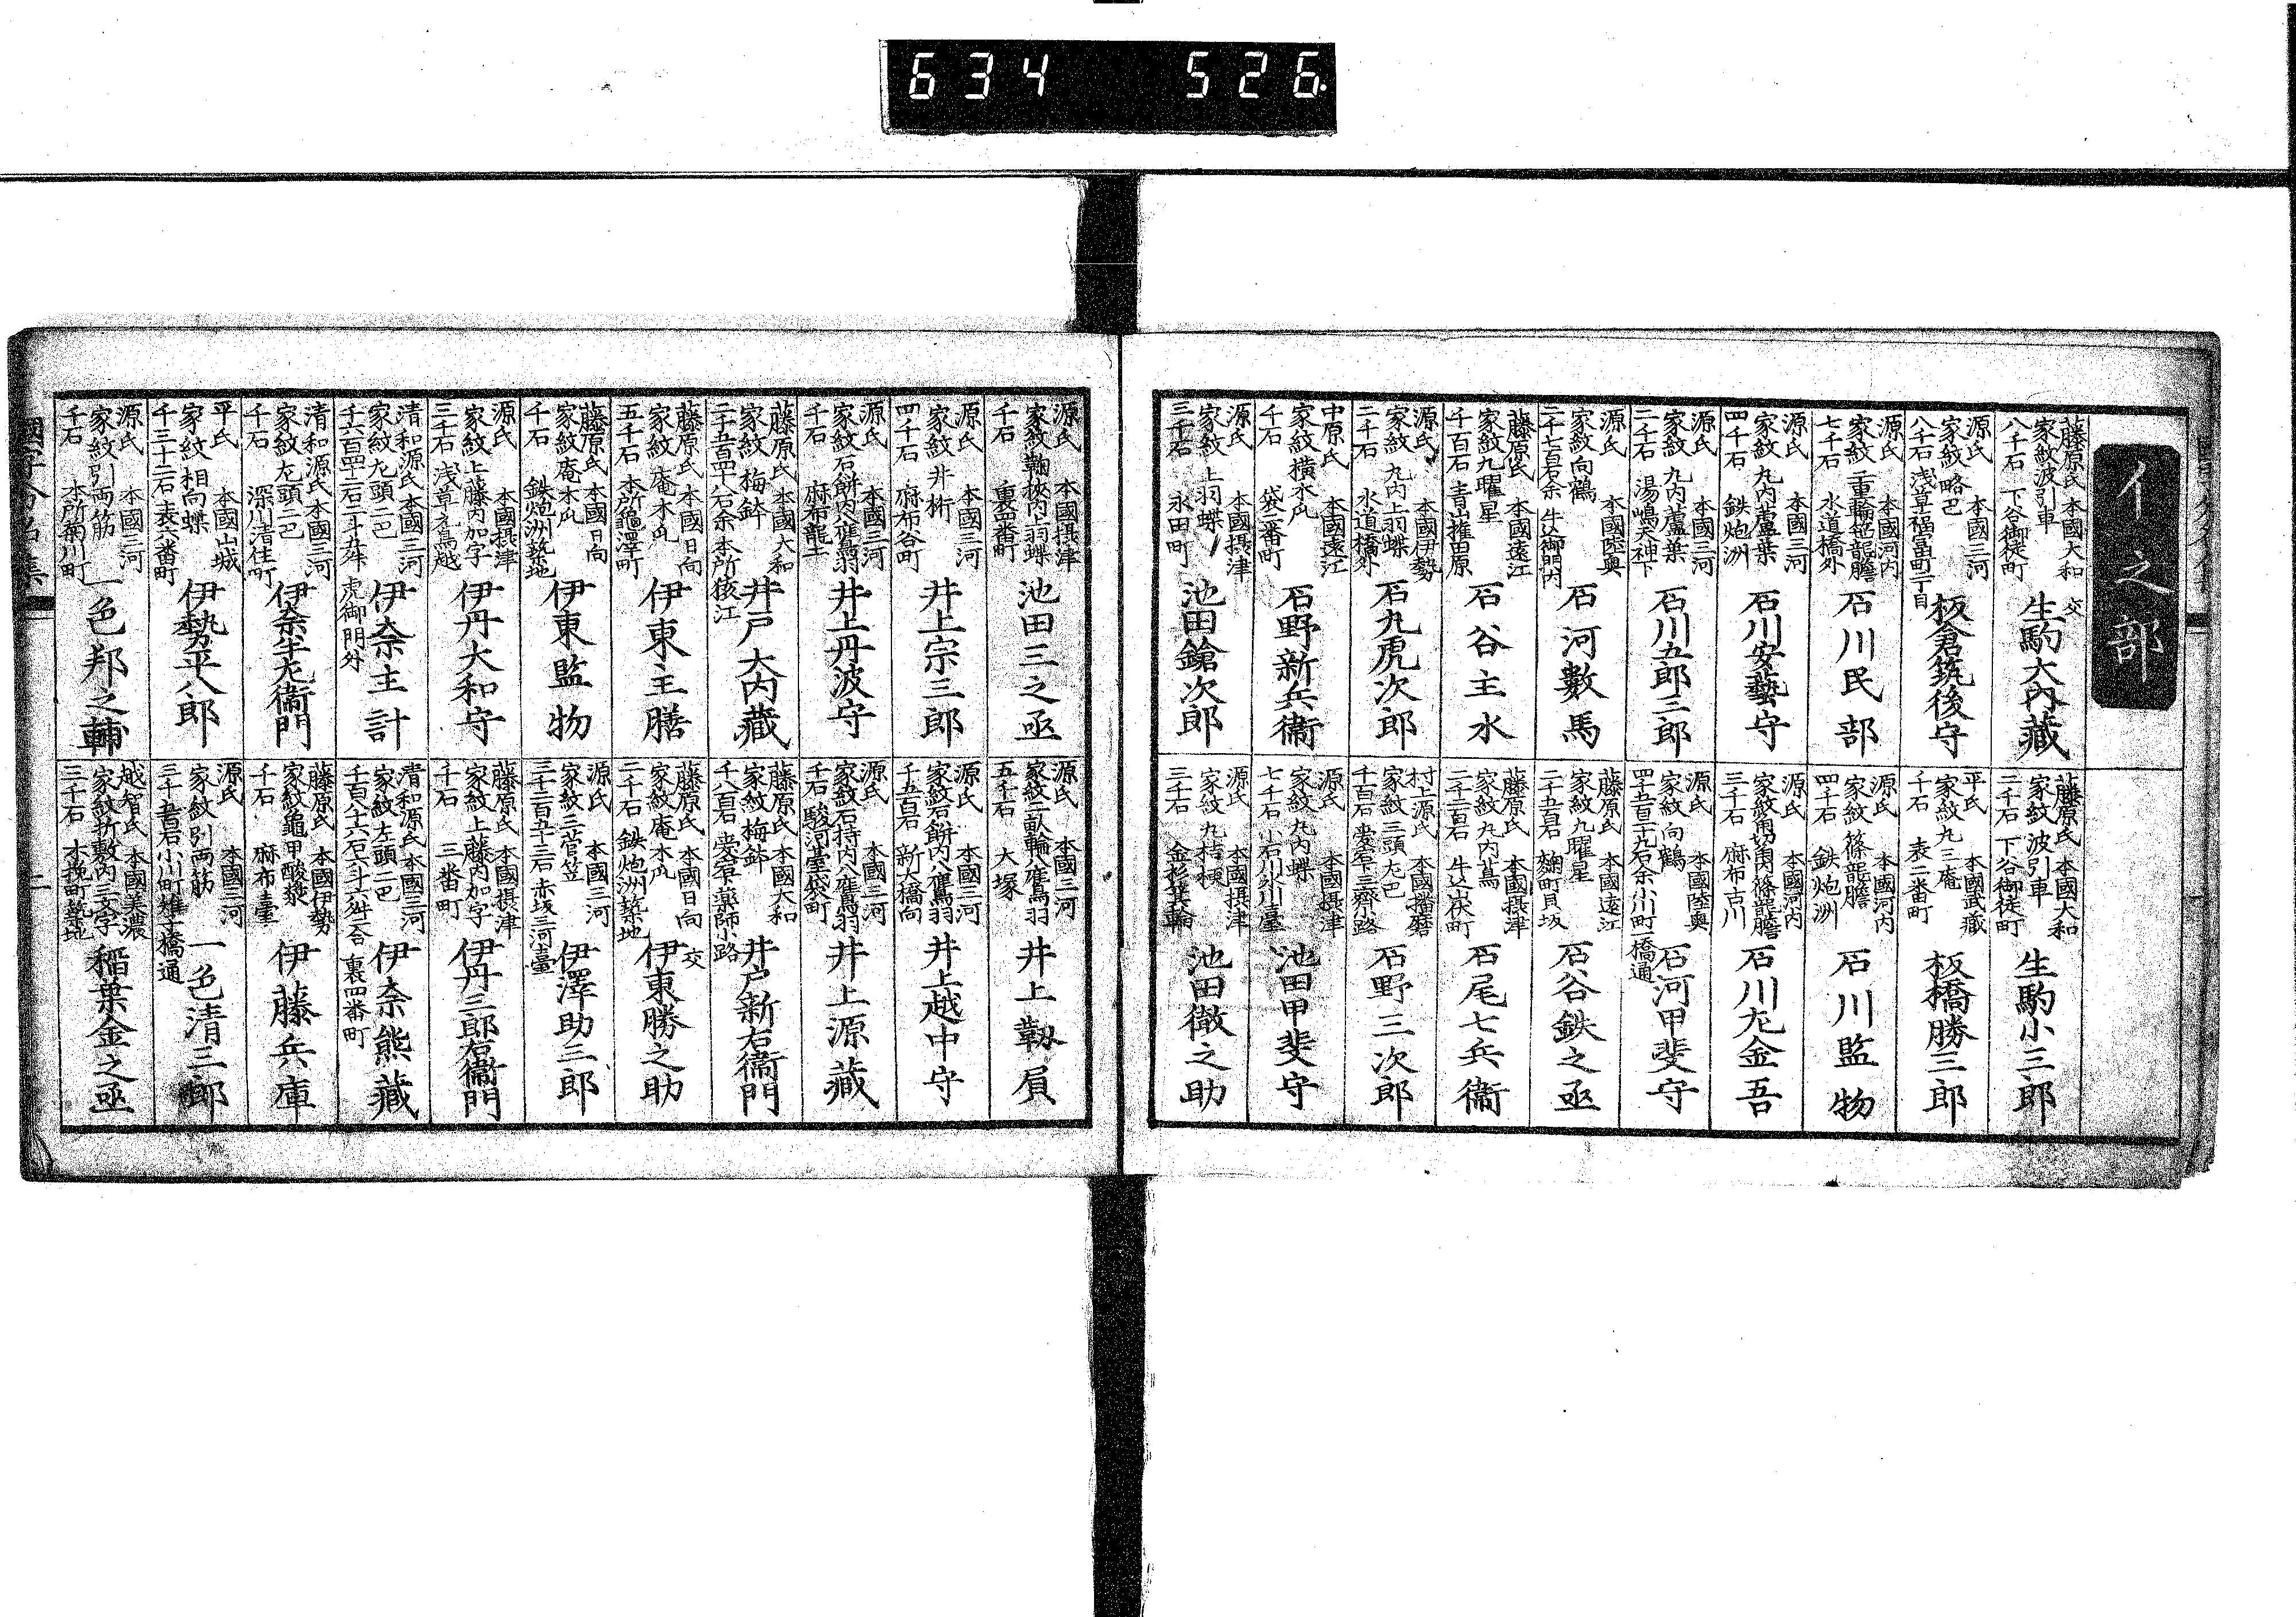 634 526
イ之部
藤原氏 本國大和
家紋波引車
八千石 下谷御徒町
交
生駒大内藏
源氏 本國三河
家紋略巴
八千石 浅草福富町二丁目
板倉筑後守
源氏 本國河内
家紋二重輪笹龍膽
七千石 水道橋外
石川民部
源氏 本國三河
家紋丸内蘆葉
四千石 鉄炮洲
石川安藝守
源氏 本國三河
家紋丸内蘆葉
二千石 湯嶋天神下
石川五郎三郎
源氏 本國陸奥
家紋向鶴
二千七百石余 牛込御門内
石河數馬
藤原氏 本國遠江
家紋九曜星
千百石 青山権田原
石谷主水
源氏 本國伊勢
家紋丸内上羽蝶
二千石 水道橋外
石丸虎次郎
中原氏 本國遠江
家紋横木瓜
千石 袋二番町
石野新兵衞
源氏 本國摂津
家紋上羽蝶
三千石 永田町
池田鎗次郎
藤原氏 本國大和
家紋波引車
二千石 下谷御徒町
生駒小三郎
平氏 本國武藏
家紋丸三庵
千石 表二番町
板橋勝三郎
源氏 本國河内
家紋篠龍膽
四千石 鉄炮洲
石川監物
源氏 本國河内
三千石 麻布古川
石川左金吾
源氏 本國陸奥
家紋向鶴
四千五百二十九石余 小川町一橋通
石河甲斐守
藤原氏 本國遠江
家紋九曜星
二千五百石 麹町貝坂
石谷鉄之丞
藤原氏 本國摂津
家紋丸内蔦
二千二百石 牛込家町
石尾七兵衞
村上源氏 本國播磨
家紋三頭左巴
千百石 愛宕下三齊小路
石野三次郎
源氏 本國摂津
家紋丸内蝶
七千石 小石川氷川臺
池田甲斐守
源氏 本國摂津
家紋丸桔梗
三千石 金杉箕輪
池田徹之助
源氏 本國摂津
家紋輪核内上羽蝶
千石 裏四番町
池田三之丞
源氏 本國三河
家紋井桁
四千石 麻布谷町
井上宗三郎
源氏 本國三河
家紋石餅内八鷹羽
千石 麻布龍土
井上丹波守
藤原氏 本國大和
家紋梅鉢
二千五百四十六石余 本所猿江
井戸大内藏
藤原氏 本國日向
家紋庵木瓜
五千石 本所龜澤町
伊東主膳
藤原氏 本國日向
家紋庵木瓜
千石 鉄炮洲築地
伊東監物
源氏 本國摂津
家紋上藤内加字
三千石 浅草元鳥越
伊丹大和守
清和源氏 本國三河
家紋左頭二巴
千六百四十二石二斗九升 虎御門外
伊奈主計
清和源氏 本國三河
家紋左頭二巴
千石 深川清住町
伊奈半左衞門
平氏 本國山城
家紋相向蝶
千三十二石 表六番町
伊勢平八郎
源氏 本國三河
家紋引両筋
千石 本所菊川町
一色邦之輔
源氏 本國三河
家紋二畝輪八鷹羽
五千石 大塚
井上靱負
源氏 本國三河
家紋石餅内八鷹羽
千五百石 新大橋向
井上越中守
源氏 本國三河
家紋石持内八鷹羽
千石 駿河臺袋町
井上源藏
藤原氏 本國大和
家紋梅鉢
千八百石 愛宕下藥師小路
井戸新右衞門
藤原氏 本國日向
家紋庵木瓜
二千石 鉄炮洲築地
交
伊東勝之助
源氏 本國三河
家紋三菅笠
三千二百五十三石 赤坂三河臺
伊澤助三郎
藤原氏 本國摂津
家紋上藤内加字
千石 三番町
伊丹三郎右衞門
清和源氏 本國三河
家紋左頭二巴
千百八十六石六斗六升六合 裏四番町
伊奈熊藏
藤原氏 本國伊勢
家紋龜甲酸漿
千石 麻布臺
伊藤兵庫
源氏 本國三河
家紋引両筋
三千五百石 小川町雉子橋通
一色清三郎
越智氏 本國美濃
家紋折敷内三文字
三千石 木挽町築地
稲葉金之丞
二